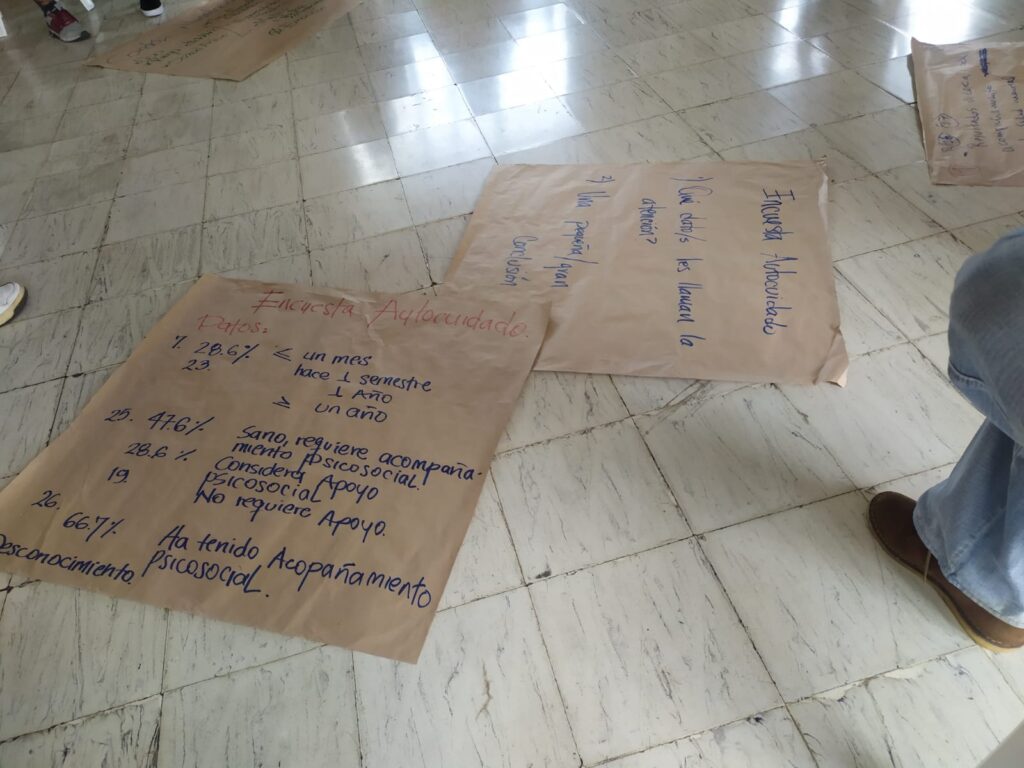 Encuesta Autocuidado.
Datos:
7. 28.6% ≤ un mes
23. hace 1 semestre
1 Año
≥ un año
25. 47.6% Sano, requiere acompaña-
miento Psicosocial.
28.6% Considera Apoyo
19. Psicosocial
No requiere Apoyo.
26.
66.7% Ha tenido Acopañamiento
Desconocimiento. Psicosocial.
Encuesta Autocuidado
1) Qué dato/s les llaman la
atención?
2) Una pequeña/gran
Conclusión